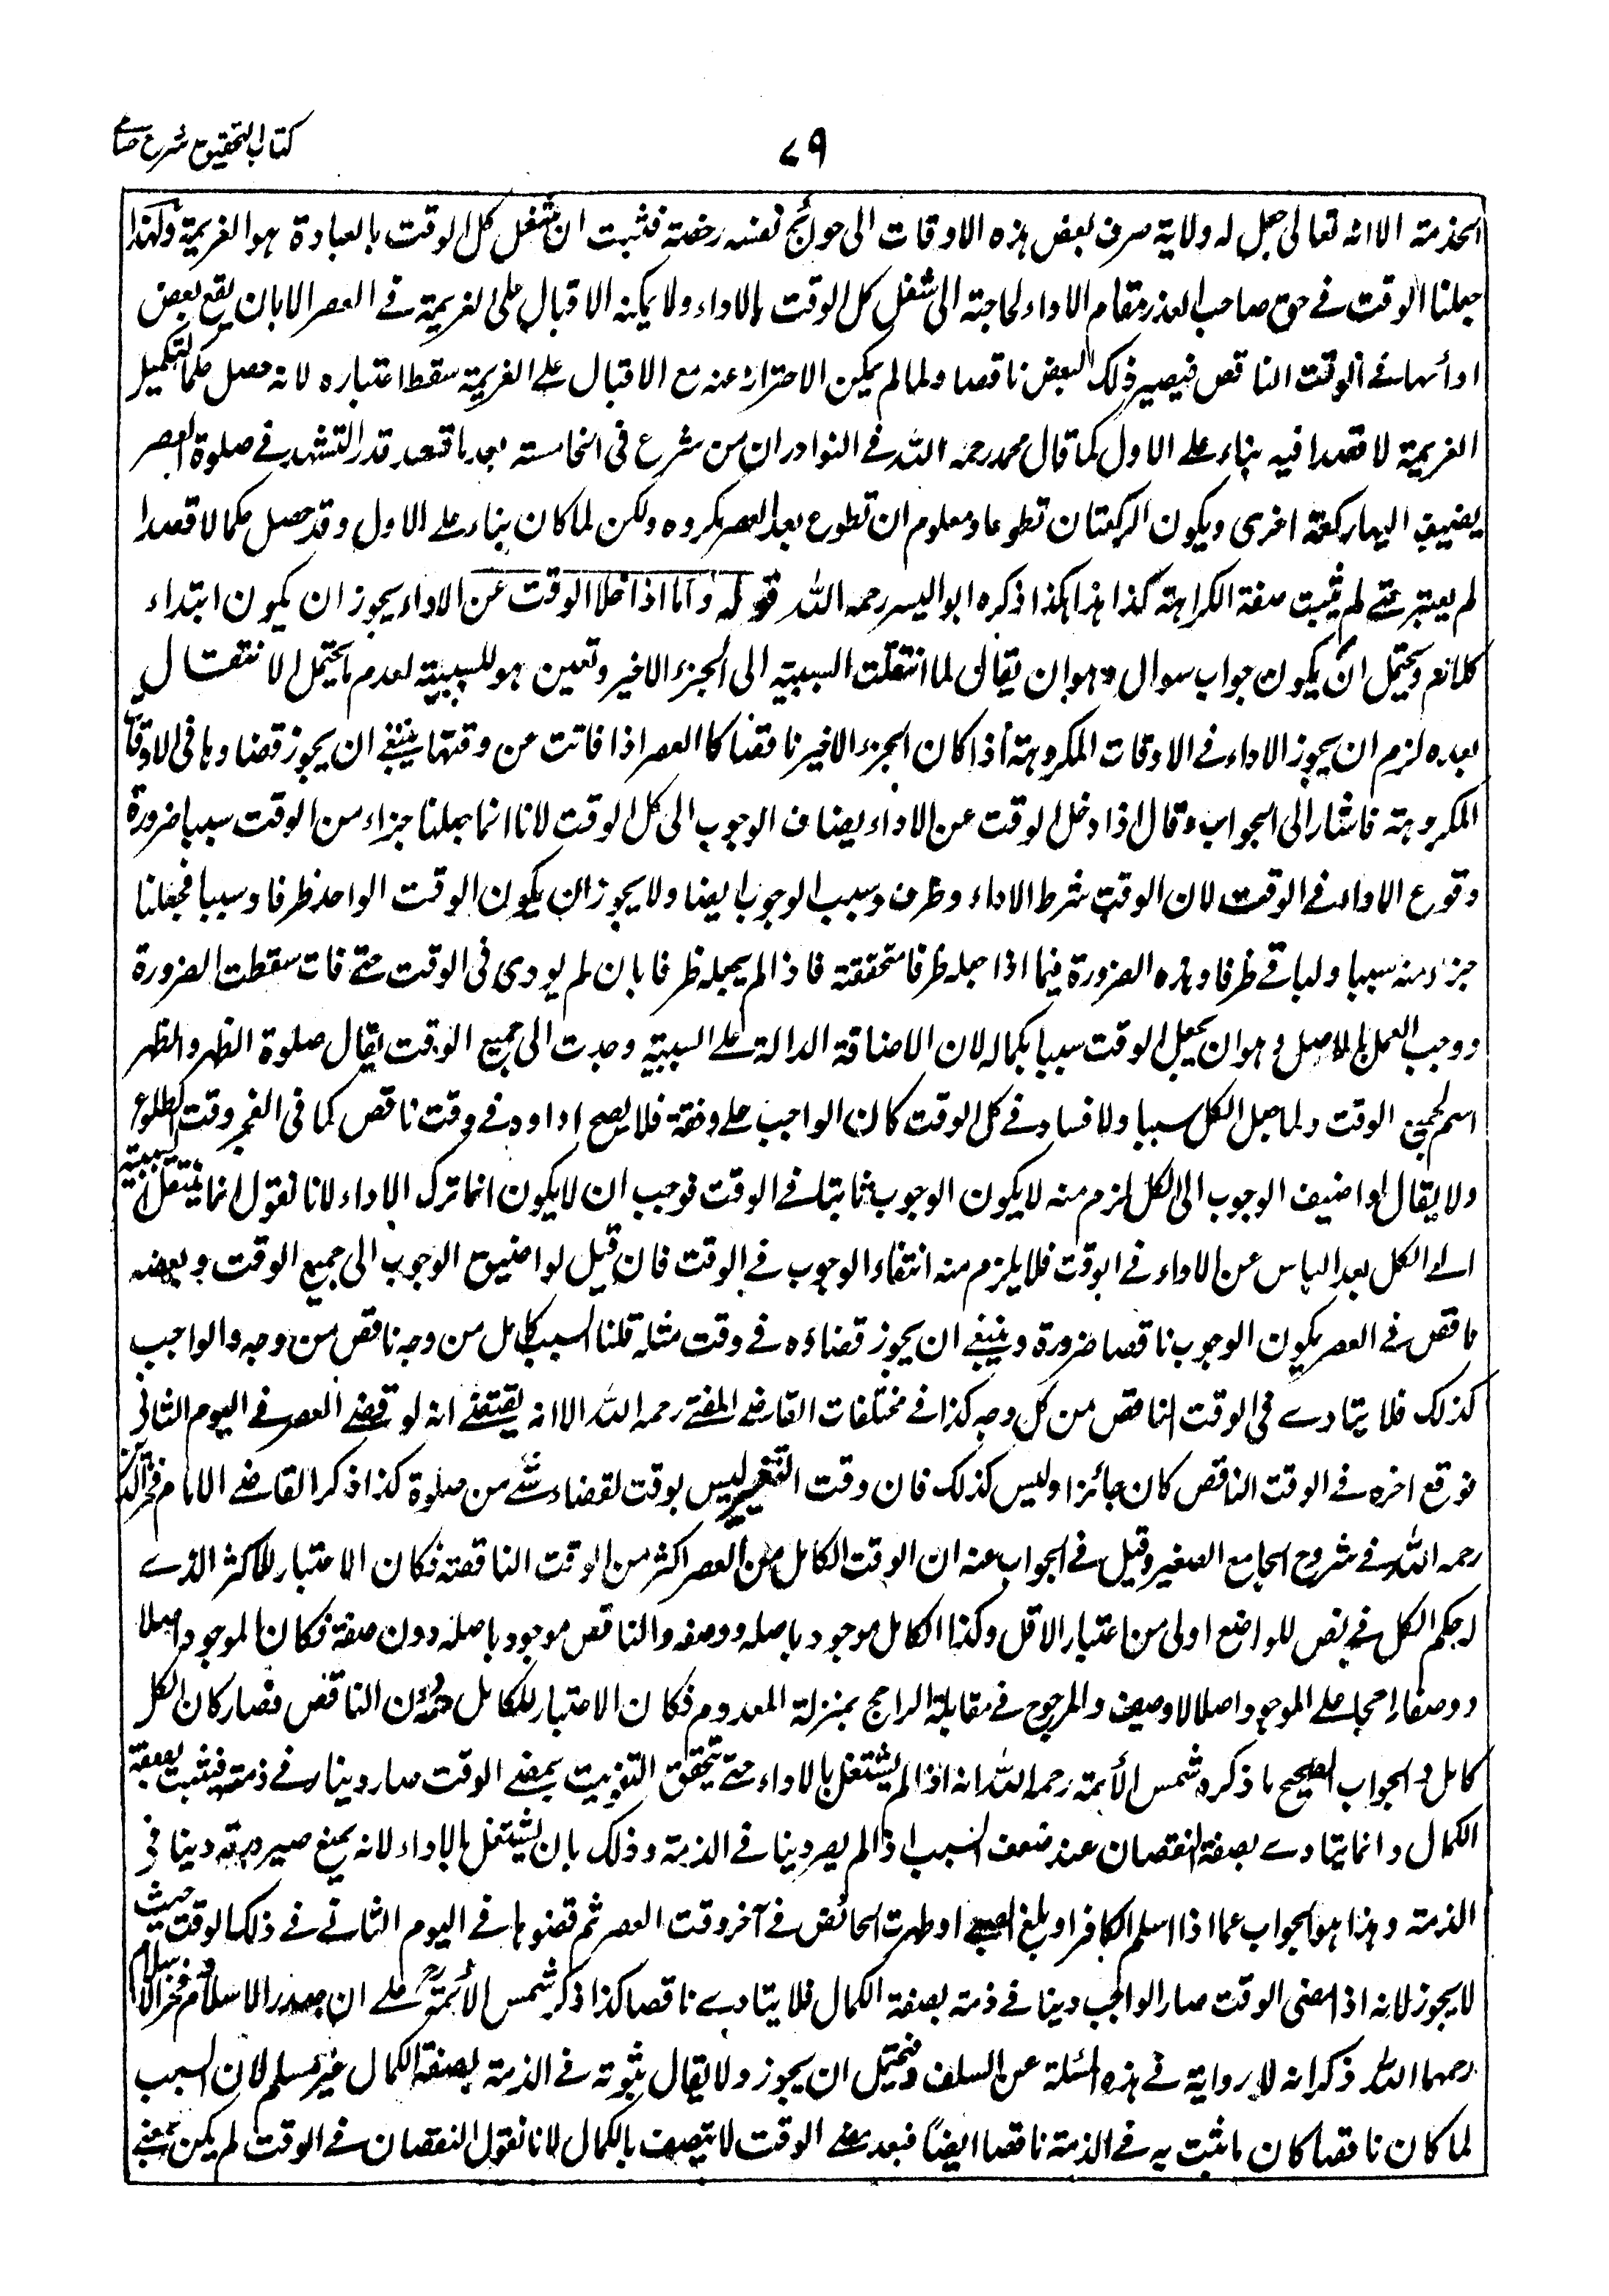 كتاب التحقيق شرح حسامي
٧٩
الخدمة الا انه تعالى جعل له ولاية صرف بعض هذه الاوقات الى حوائج نفسه رخصة فثبت ان شغل كل الوقت بالعبادة هو العزيمة ولهذا
جعلنا الوقت في حق صاحب العذر مقام الاداء لحاجته الى شغل كل الوقت بالاداء ولا يمكنه الاقبال على العزيمة في العصر الا بان يقع بعض
ادائها في الوقت الناقص فيصير ذلك البعض ناقصا ولما لم يمكن الاحتراز عنه مع الاقبال على العزيمة سقط اعتباره لانه حصل حكما لتكميل
العزيمة لا قصدا فيه بناء على الاول كما قال محمد رحمه الله في النوادر ان من شرع في الخامسة بعد ما قعد قدر التشهد في صلوة العصر
يضيف اليها ركعة اخرى ويكون الركعتان تطوعا ومعلوم ان تطوع بعد العصر مكروه ولكن لما كان بناء على الاول وقد حصل حكما لا قصدا
لم يعتبر حتى لم يثبت صفة الكراهة كذا هذا هكذا ذكره ابو اليسر رحمه الله قوله واما اذا خلا الوقت عن الاداء يجوز ان يكون ابتداء
كلام ويحتمل ان يكون جواب سوال وهو ان يقال لما انتقلت السببية الى الجزء الاخير وتعين هو للسببية لعدم ما يحتمل الانتقال
بعده لزم ان يجوز الاداء في الاوقات المكروهة اذا كان الجزء الاخير ناقصا كالعصر اذا فاتت عن وقتها ينبغي ان يجوز قضاوها في الاوقات
المكروهة فاشار الى الجواب وقال اذا دخل الوقت عن الاداء يضاف الوجوب الى كل الوقت لانا انما جعلنا جزاء من الوقت سببا ضرورة
وقوع الاداء في الوقت لان الوقت شرط الاداء وظرف وسبب الوجوب ايضا ولا يجوز ان يكون الوقت الواحد ظرفا وسببا فجعلنا
جزء منه سببا ولباقي ظرفا وهذه الضرورة فيما اذا جعله ظرفا متحققة فاذا لم يجعله ظرفا بان لم يودى في الوقت حتى فات سقطت الضرورة
ووجب العمل بالاصل وهو ان يجعل الوقت سببا بكماله لان الاضافة الدالة على السببية وجدت الى جميع الوقت يقال صلوة الظهر والظهر
اسم لجميع الوقت ولما جعل الكل سببا ولا فساد في كل الوقت كان الواجب على وفقة فلا يصح اداوه في وقت ناقص كما في الفجر وقت الطلوع
ولا يقال لو اضيف الوجوب الى الكل لزم منه لا يكون الوجوب ثابتا في الوقت فوجب ان لا يكون اثما ترك الاداء لانا نقول انما ينتقل السببية
الى الكل بعد الياس عن الاداء في الوقت فلا يلزم منه انتفاء الوجوب في الوقت فان قيل لو اضيف الوجوب الى جميع الوقت وبعضه
ناقص في العصر يكون الوجوب ناقصا ضرورة وينبغي ان يجوز قضاؤه في وقت مثله قلنا السبب كامل من وجه ناقص من وجه والواجب
كذلك فلا يتادى في الوقت الناقص من كل وجه كذا في مختلفات القاضي المفتي رحمه الله الا انه يقتضي انه لو قضى العصر في اليوم الثاني
فوقع اخره في الوقت الناقص كان جائزا وليس كذلك فان وقت التغير ليس بوقت لقضاء شي من صلوة كذا ذكر القاضي الامام فخر الدين
رحمه الله في شروح الجامع الصغير وقيل في الجواب عنه ان الوقت الكامل من العصر اكثر من الوقت الناقصة فكان الاعتبار للاكثر الذي
له حكم الكل في بعض المواضع اولى من اعتبار الاقل وكذا الكامل موجود باصله ووصفه والناقص موجود باصله دون صفة فكان الموجود اصلا
ووصفا راجحا على الموجود اصلا لا وصيف والمرجوح في مقابلة الراجح بمنزلة المعدوم فكان الاعتبار للكامل دون الناقص فصار كان الكل
كامل والجواب الصحيح ما ذكره شمس الأئمة رحمه الله انه اذا لم يشتغل بالاداء حتى تحقق التفويت بمضي الوقت صار دينا في ذمته فيثبت بصفة
الكمال وانما يتادى بصفة النقصان عند ضعف السبب اذا لم يصر دينا في الذمة وذلك بان يشتغل بالاداء لانه يمنع صيرورته دينا في
الذمة وهذا هو الجواب عما اذا اسلم الكافر او بلغ الصبي او طهرت الحائض في آخر وقت العصر ثم قضوها في اليوم الثاني في ذلك الوقت حيث
لا يجوز لانه اذا مضى الوقت صار الواجب دينا في ذمته بصفة الكمال فلا يتادى ناقصا كذا ذكر شمس الأئمة رح على ان صدر الاسلام وفخر الاسلام
رحمهما الله ذكرا انه لا رواية في هذه المسئلة عن السلف فيحتمل ان يجوز ولا يقال ثبوته في الذمة بصفة الكمال غير مسلم لان السبب
لما كان ناقصا كان ما ثبت به في الذمة ناقصا ايضا فبعد مضي الوقت لا يتصف بالكمال لانا نقول النقصان في الوقت لم يكن بمعنى